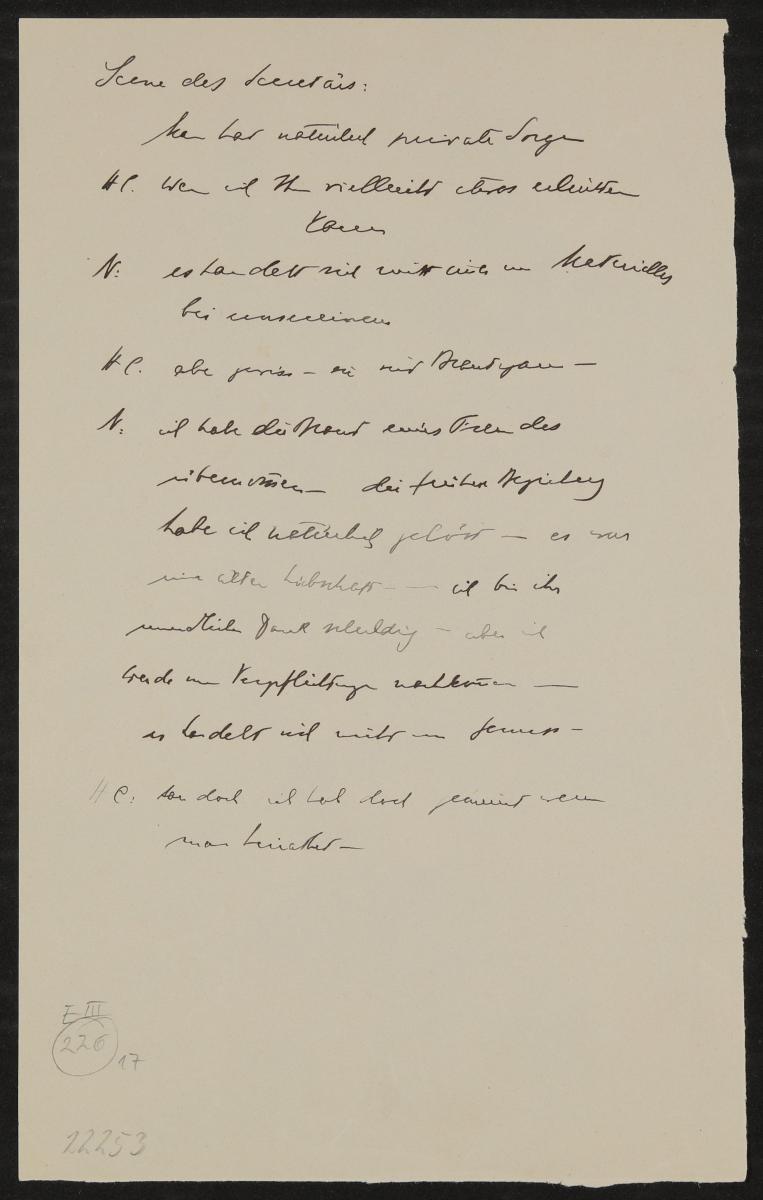 Scene des Secretärs:
Man hat natürlich private Sorgen
H C. Wenn ich Ihnen vielleicht etwas erbitten
kann
N: es handelt sich nicht um Materielles
bei unsereinem
H C. aber gewiss – sie sind Bräutigam –
N: ich habe die Braut eines Freundes
übernommen – die frühere Beziehung
habe ich natürlich gelöst – es war
eine alte Liebschaft – – ich bin ihr
unendlichen Dank schuldig – aber ich
werde Verpflichtungen nachkommen —
es handelt sich nicht um Genuss –
H C: doch ich hab doch gemeint wenn
man heirathet –
E III
226
17
12253